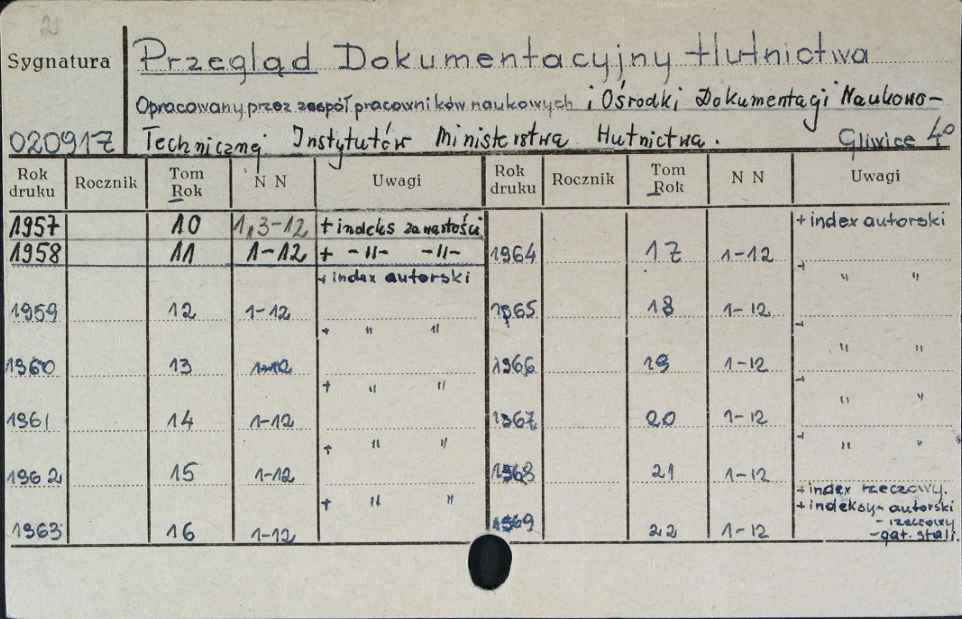 Sygnatura
Przegląd Dokumentacyjny Hutnictwa
Opracowany przez zespół pracowników naukowych i Ośrodki Dokumentacji Naukowo-
020917 Technicznej Instytutów Ministerstwa Hutnictwa. Gliwice 4°
Rok druku Rocznik Tom Rok N N Uwagi Rok druku Rocznik Tom Rok N N Uwagi
1957 10 1,3-12 + indeks zawartości
+ index autorski
1958 11 1-12 + -"- -"- 1964 17 1-12
+ index autorski + " "
1959 12 1-12 1965 18 1-12
+ " " + " "
1960 13 1-12 1966 19 1-12
+ " " + " "
1961 14 1-12 1967 20 1-12
+ " " + " "
1962 15 1-12 1968 21 1-12
+ index rzeczowy.
+ " " + indeksy - autorski
- rzeczowy
1963 16 1-12 1969 22 1-12 - gat. stali.